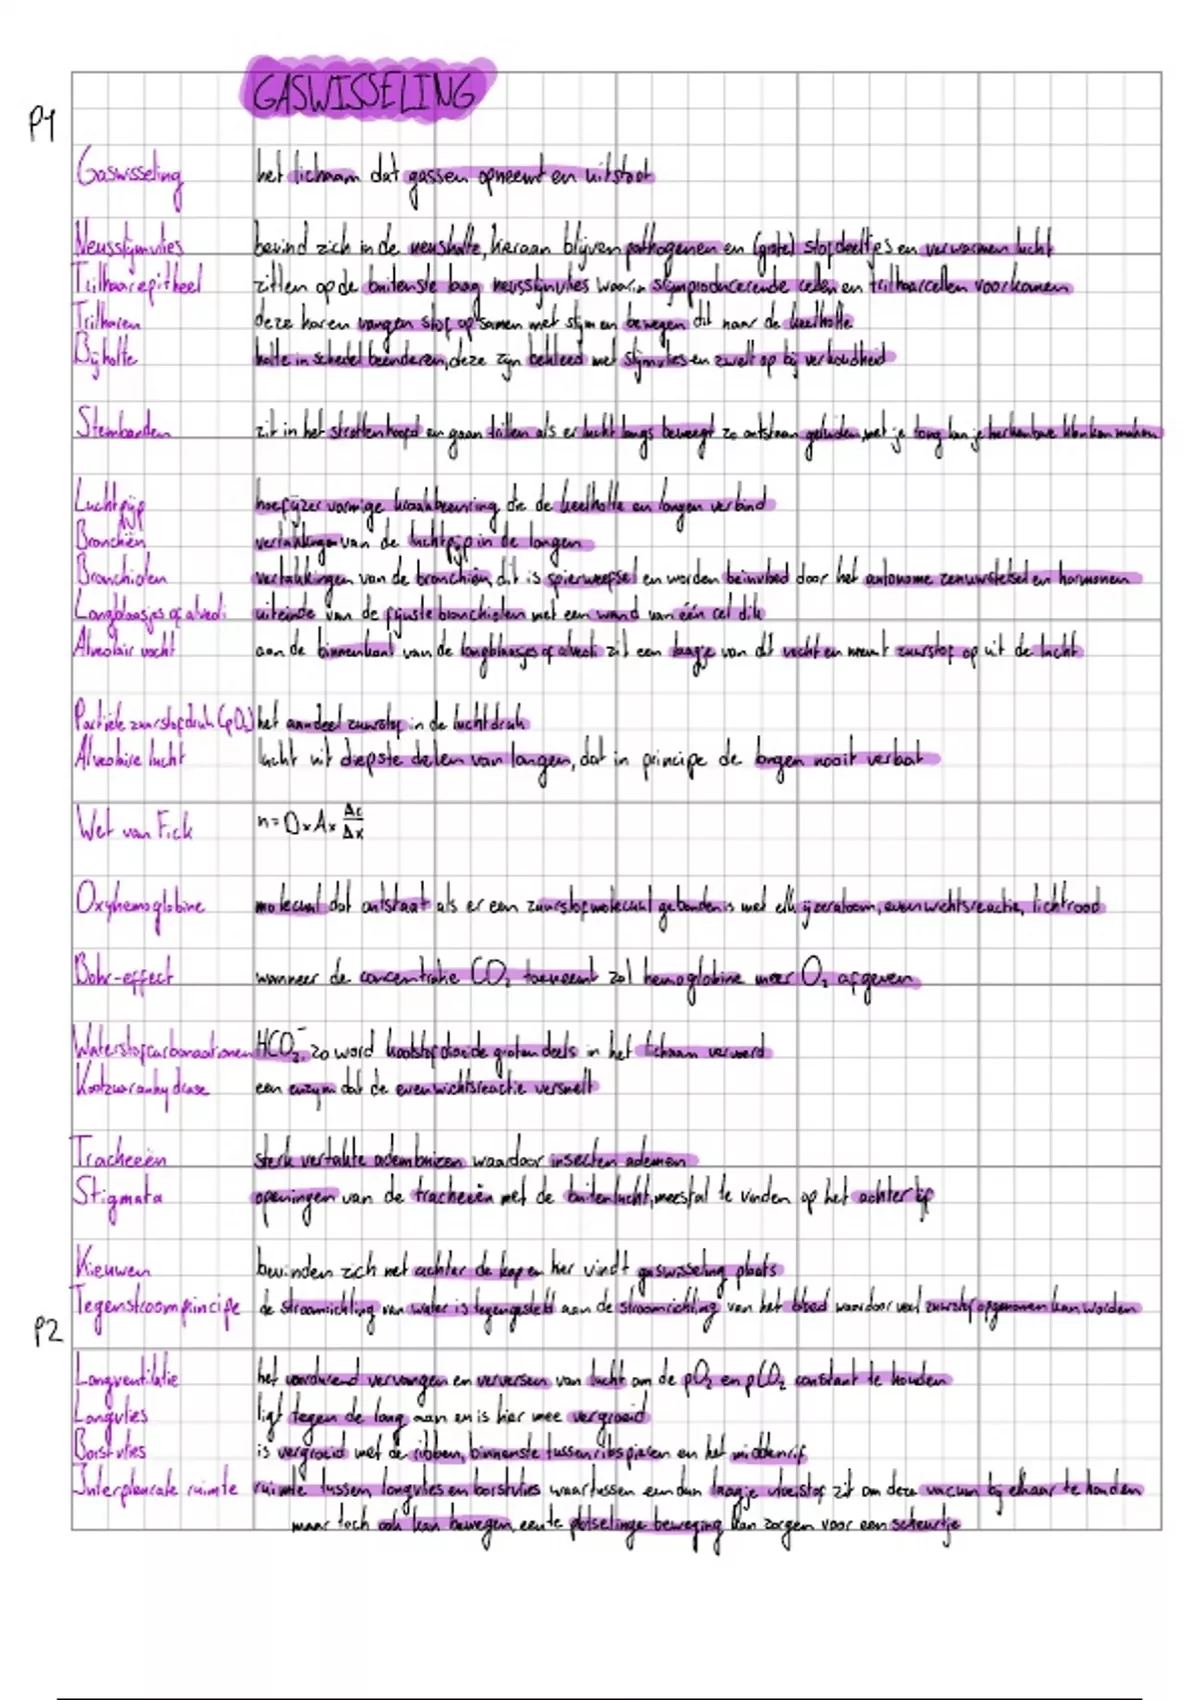 GASWISSELING
P1
Gaswisseling het lichaam dat gassen opneemt en uitstoot
Neusslijmvlies bevind zich in de neusholte, hieraan blijven pathogenen en (grote) stofdeeltjes en verwarmen lucht
Trilhaarepitheel zitten op de buitenste laag neusslijmvlies waarin slijmproducerende cellen en trilhaarcellen voorkomen
Trilharen deze haren vangen stof op samen met slijm en bewegen dit naar de keelholte
Bijholte holte in schedel beenderen, deze zijn bekleed met slijmvlies en zwelt op bij verkoudheid
Stembanden zit in het strottenhoofd en gaan trillen als er lucht langs beweegt zo ontstaan geluiden, met je tong kan je herkenbare klanken maken
Luchtpijp hoefijzer vormige kraakbeenring die de keelholte en longen verbind
Bronchiën vertakkingen van de luchtpijp in de longen
Bronchiolen vertakkingen van de bronchiën, dit is spierweefsel en worden beïnvloed door het autonome zenuwstelsel en hormonen
Longblaasjes of alveoli uiteinde van de fijnste bronchiolen met een wand van één cel dik
Alveolair vocht aan de binnenkant van de longblaasjes of alveoli zit een laagje van dit vocht en neemt zuurstof op uit de lucht
Partiële zuurstofdruk (pO₂) het aandeel zuurstof in de luchtdruk
Alveolaire lucht lucht uit diepste delen van longen, dat in principe de longen nooit verlaat
Wet van Fick n = D × A × Δc/Δx
Oxyhemoglobine molecuul dat ontstaat als er een zuurstofmolecuul gebonden is met elk ijzeratoom, evenwichtsreactie, lichtrood
Bohr-effect wanneer de concentratie CO₂ toeneemt zal hemoglobine meer O₂ afgeven
Waterstofcarbonaationen HCO₃⁻, zo word koolstofdioxide grotendeels in het lichaam vervoerd
Koolzuuranhydrase een enzym dat de evenwichtsreactie versnelt
Tracheeën sterk vertakte adembuizen waardoor insecten ademen
Stigmata openingen van de tracheeën met de buitenlucht, meestal te vinden op het achterlijf
Kieuwen bevinden zich net achter de kop en hier vindt gaswisseling plaats
Tegenstroomprincipe de stroomrichting van water is tegengesteld aan de stroomrichting van het bloed waardoor veel zuurstof opgenomen kan worden
P2
Longventilatie het voordurend vervangen en verversen van lucht om de pO₂ en pCO₂ constant te houden
Longvlies ligt tegen de long aan en is hier mee vergroeid
Borstvlies is vergroeid met de ribben, binnenste tussenribspieren en het middenrif
Interpleurale ruimte ruimte tussen longvlies en borstvlies waartussen een dun laagje vloeistof zit om deze vacum bij elkaar te houden
maar toch ook kan bewegen, een te plotselinge beweging kan zorgen voor een scheurtje